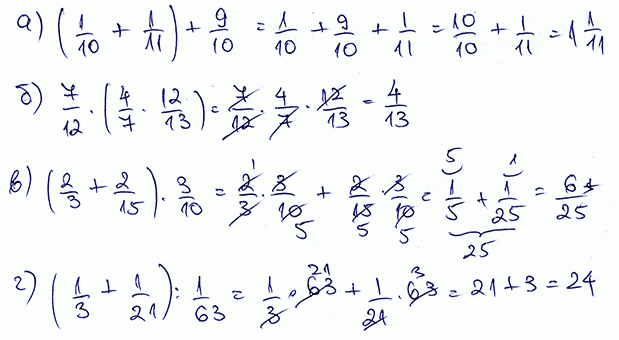 а) (1/10 + 1/11) + 9/10 = 1/10 + 9/10 + 1/11 = 10/10 + 1/11 = 1 1/11
б) 7/12 · (4/7 · 12/13) = 7/12 · 4/7 · 12/13 = 4/13
в) (2/3 + 2/15) · 3/10 = 2/3 · 3/10 + 2/15 · 3/10 = 1/5 + 1/25 = 6/25
г) (1/3 + 1/21) : 1/63 = 1/3 · 63 + 1/21 · 63 = 21 + 3 = 24